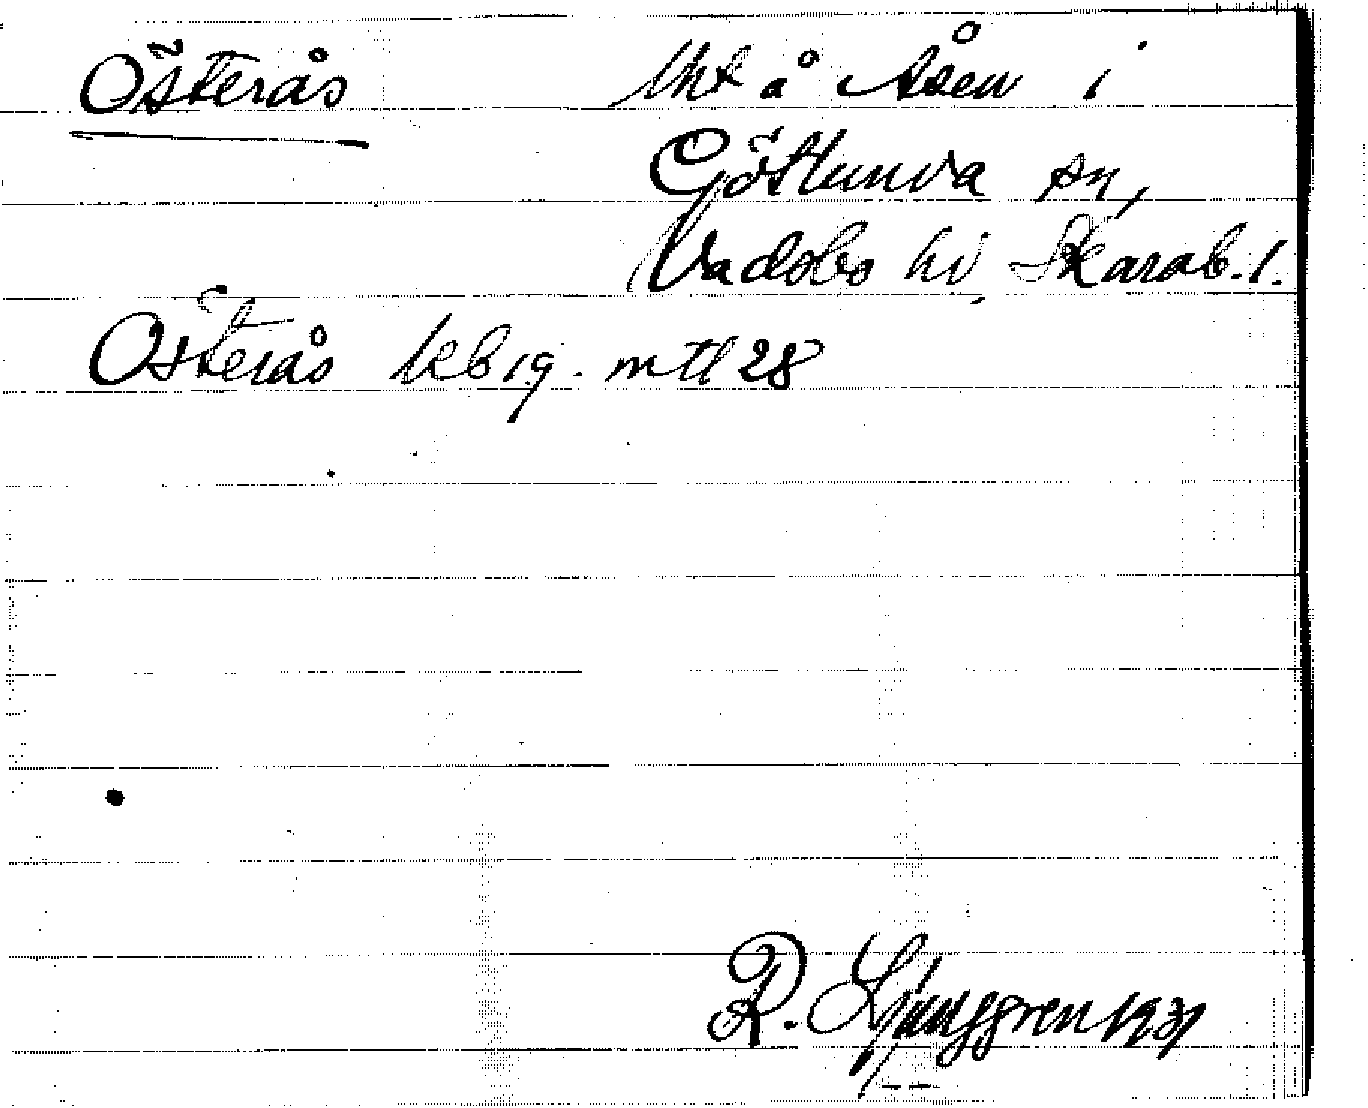 Österås lht å Åsen i
Götlunda sn,
Vadsbo hd, Skarab. l.
Österås kb 19. mtl 28
R. Ljunggren 1931